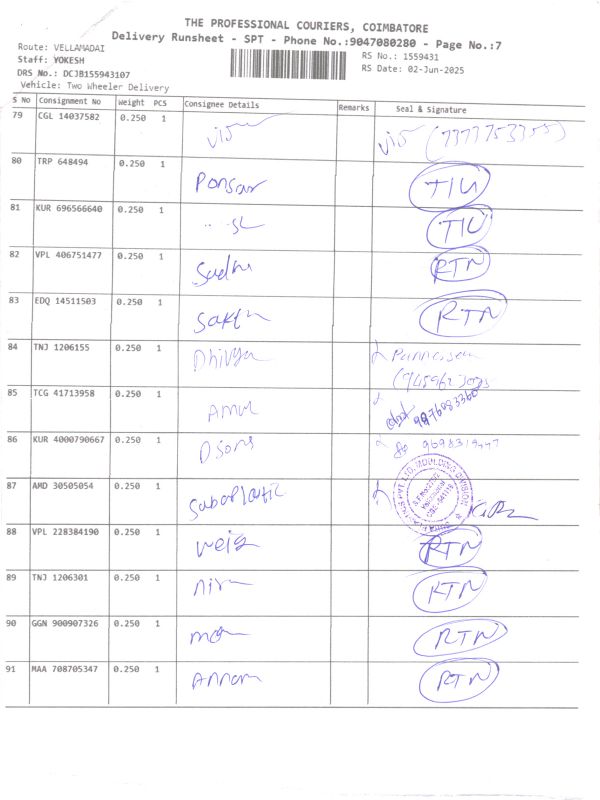 THE PROFESSIONAL COURIERS, COIMBATORE
Delivery Runsheet - SPT - Phone No.:9047080280 - Page No.:7
Route: VELLAMADAI
Staff: YOKESH
DRS No.: DCJB155943107
Vehicle: Two Wheeler Delivery
RS No.: 1559431
RS Date: 02-Jun-2025
S No Consignment No Weight PCS Consignee Details Remarks Seal & Signature
79 CGL 14037582 0.250 1
80 TRP 648494 0.250 1 Ponsar TIU
81 KUR 696566640 0.250 1 TIU
82 VPL 406751477 0.250 1 Sadhu RTN
83 EDQ 14511503 0.250 1 RTN
84 TNJ 1206155 0.250 1 Dhivya
85 TCG 41713958 0.250 1 Amul 9876083360
86 KUR 4000790667 0.250 1 Dsons
87 AMD 30505054 0.250 1 MOULDING DIVISION
88 VPL 228384190 0.250 1 RTN
89 TNJ 1206301 0.250 1 RTN
90 GGN 900907326 0.250 1 RTN
91 MAA 708705347 0.250 1 Annam RTN